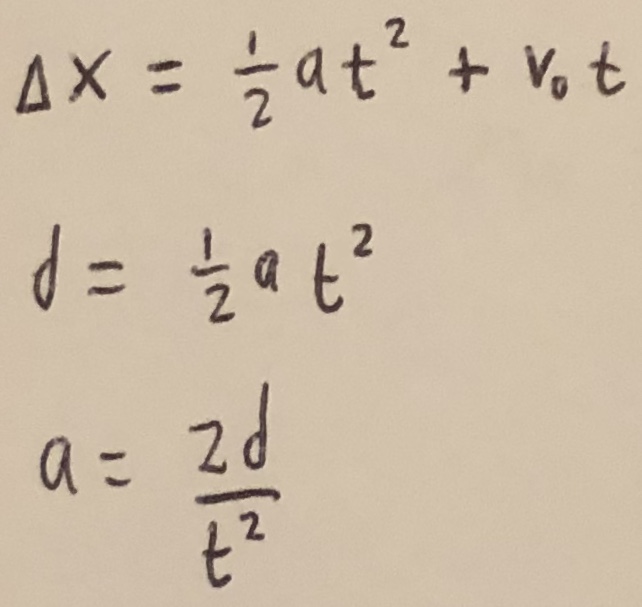 Δx = ½at² + v₀t
d = ½at²
a = 2d/t²